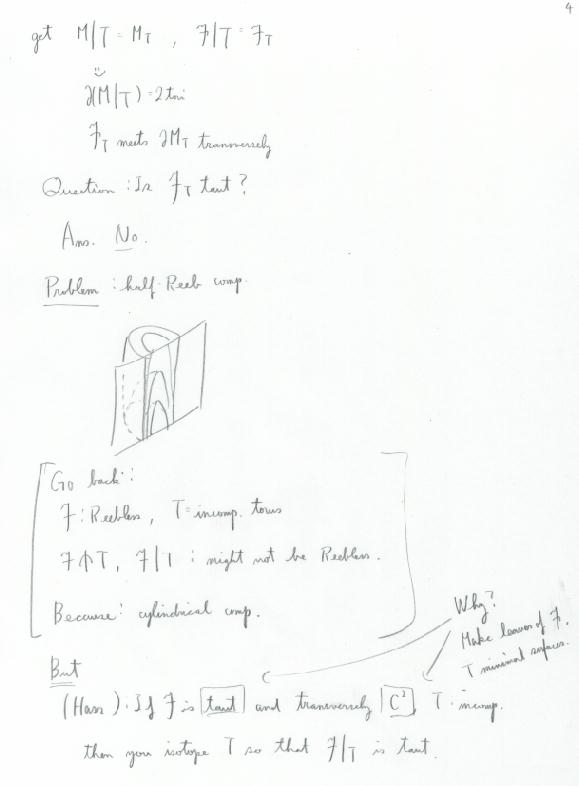 4
get M|T = M_T , ℱ|T = ℱ_T
∂(M|T) = 2 tori
ℱ_T meets ∂M_T transversely
Question : Is ℱ_T taut ?
Ans. No.
Problem : half-Reeb comp.
Go back :
ℱ : Reebless, T = incomp. torus
ℱ ⋔ T, ℱ|T : might not be Reebless.
Because : cylindrical comp.
Why?
Make leaves of ℱ,
T minimal surfaces.
But
(Hass) : If ℱ is taut and transversely C², T incomp.
then you isotope T so that ℱ|T is taut.